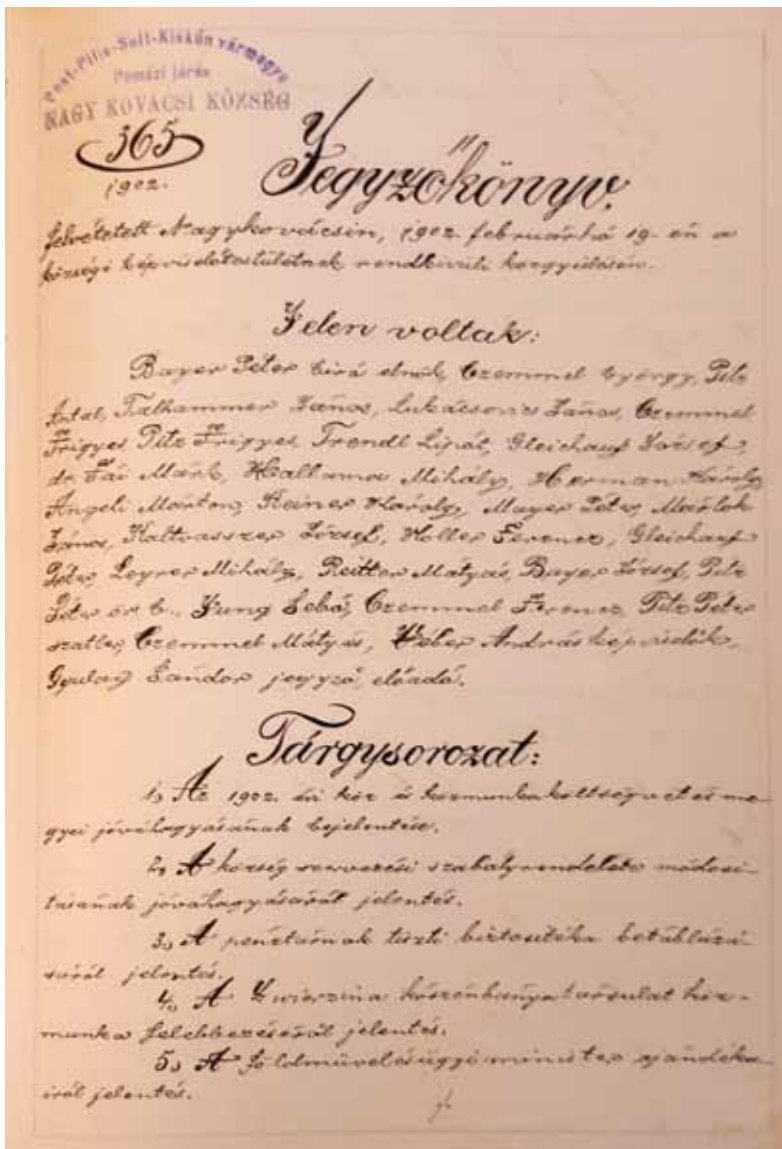 Pest-Pilis-Solt-Kiskún vármegye
Pomázi járás
NAGY KOVÁCSI KÖZSÉG
365
1902.
Jegyzőkönyv.
felvétetett Nagykovácsin, 1902. februárhá 19-én a
községi képviselőtestületnek rendkivüli közgyülésén.
Jelen voltak:
Bayer Péter biró elnök, Czemmel György, Pitz
Antal, Talhammer János, Lukácsovics János, Czemmel
Frigyes, Pitz Frigyes, Trendl Lipót, Gleichauf József,
dr. Fái Mark, Hallama Mihály, Herman Károly,
Angeli Márton, Reiner Károly, Mayer Péter, Marlok
János, Kaltvasszer József, Holler Ferencz, Gleichauf
Péter, Leyrer Mihály, Reitter Mátyás, Bayer József, Pitz
Péter ör b., Jung Sebő, Czemmel Ferencz, Pitz Péter
szatler, Czemmel Mátyás, Wéber András képviselők,
Gyulay Sándor jegyző, előadó.
Tárgysorozat:
1, Az 1902. évi köz és közmunka költségvetés me-
gyei jóváhagyásának bejelentése.
2, A község szervezési szabályrendelete módosi-
tásának jóváhagyásáról jelentés.
3, A pénztárnak tiszti biztositéka betáblázá-
sáról jelentés.
4, A Zwierzina köszénbánya társulat köz-
munka felebbezéséről jelentés.
5, A földmüvelésügyi minister ajándéka-
iról jelentés.